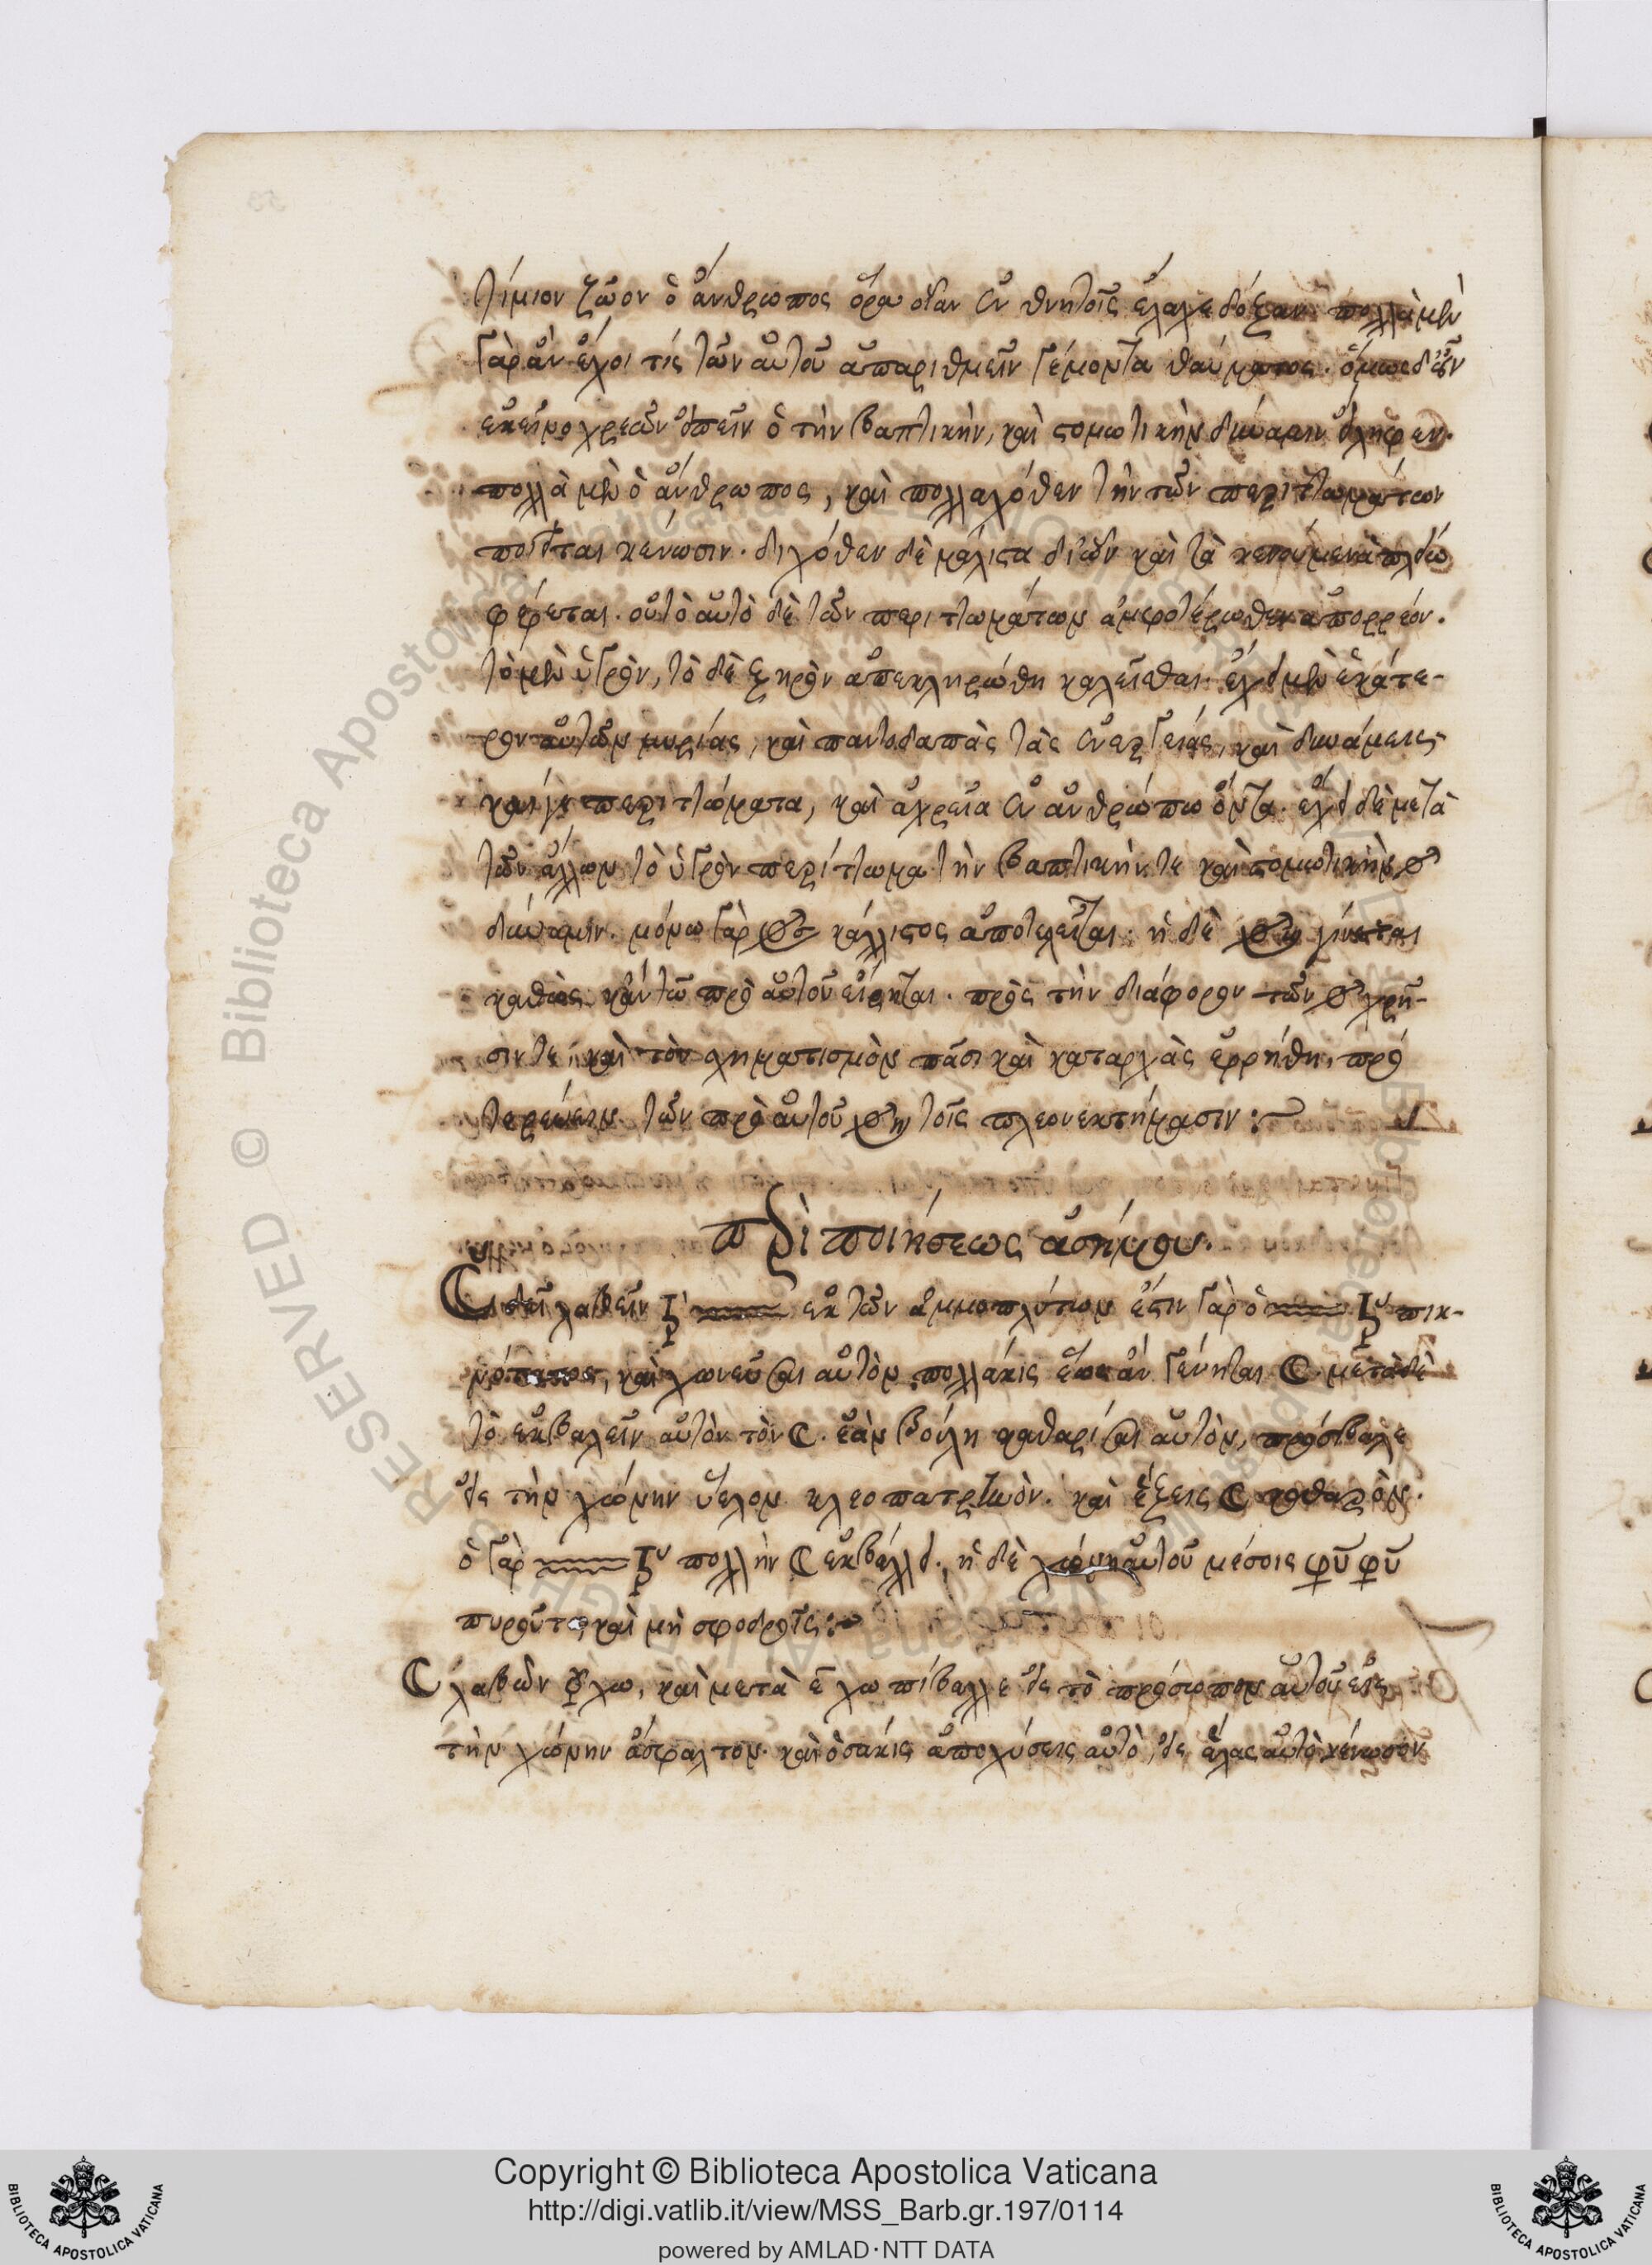 τίμιον ζῶον ὁ ἄνθρωπος ὅρα οἵαν ἐν θνητοῖς ἔλαχε δόξαν. πολλὰ μὲν
γὰρ ἂν ἔχοι τίς τῶν αὐτοῦ ἀπαριθμεῖν γέμοντα θαύματος. ὅμως δ' οὖν
ἐκεῖνο χρεὼν εἰπεῖν ὁ τὴν βαπτικὴν, καὶ στομωτικὴν δύναμιν εἴληφεν.
πολλὰ μὲν ὁ ἄνθρωπος, καὶ πολλαχόθεν τὴν τῶν περιττωμάτων
ποιεῖται κένωσιν. διχόθεν δὲ μάλιστα δι' ὧν καὶ τὰ κενούμενα
φέρεται. οὐ τὸ αὐτὸ δὲ τῶν περιττωμάτων ἀμφοτέρωθεν ἀπορρέον.
τὸ μὲν ὑγρὸν, τὸ δὲ ξηρὸν ἀπεκληρώθη καλεῖσθαι. ἔχει μὲν ἑκάτε-
ρον αὐτῶν μυρίας, καὶ παντοδαπὰς τὰς ἐνεργείας, καὶ δυνάμεις
καίγε περιττώματα, καὶ ἀχρεῖα ἐν ἀνθρώπω ὄντα. ἔχει δὲ μετὰ
τῶν ἄλλων τὸ ὑγρὸν περίττωμα τὴν βαπτικήν τε καὶ στομωτικὴν
δύναμιν. μόνω γὰρ κάλλιστος ἀποτελεῖται. ἡ δὲ γίνεται
καθὼς κἀν τῶ πρὸ αὐτοῦ εἴρηται. πρὸς τὴν διάφορον τῶν χρῆ-
σιν τε, καὶ τὸν σχηματισμὸν πᾶσι καὶ καταρχὰς ἐρρήθη,
τῶν πρὸ αὐτοῦ τοῖς πλεονεκτήμασιν :~
περὶ ποιήσεως ἀσήμου.
δεῖ λαβεῖν ἐκ τῶν ἀμμοπλύτων ἔστιν γὰρ ὁ πικ-
νότατος, καὶ χωνεῦσαι αὐτὸν πολλάκις ἕως ἂν γένηται ☾. μετὰ δὲ
τὸ ἐκβαλεῖν αὐτὸν τὸν ☾. ἐὰν βούλη καθαρίσαι αὐτὸν, πρόσβαλε
εἰς τὴν χώνην ὕελον κλεοπατρινὸν. καὶ ἕξεις ☾ καθαρὸν.
ὁ γὰρ πολλὴν ☾ ἐκβάλλει. ἡ δὲ χώνη αὐτοῦ μέσοις
πυροῦται, καὶ μὴ σφοδροῖς :~
☾ λαβὼν χω, καὶ μετὰ ἐπίβαλλε εἰς τὸ πρόσωπον αὐτοῦ εἰς
τὴν χώνην ἄσφαλτον. καὶ ὁσάκις ἀπολύσεις αὐτὸ, εἰς ἅλας αὐτὸ κένωσον
Copyright © Biblioteca Apostolica Vaticana
http://digi.vatlib.it/view/MSS_Barb.gr.197/0114
powered by AMLAD·NTT DATA
BIBLIOTECA APOSTOLICA VATICANA
BIBLIOTECA APOSTOLICA VATICANA